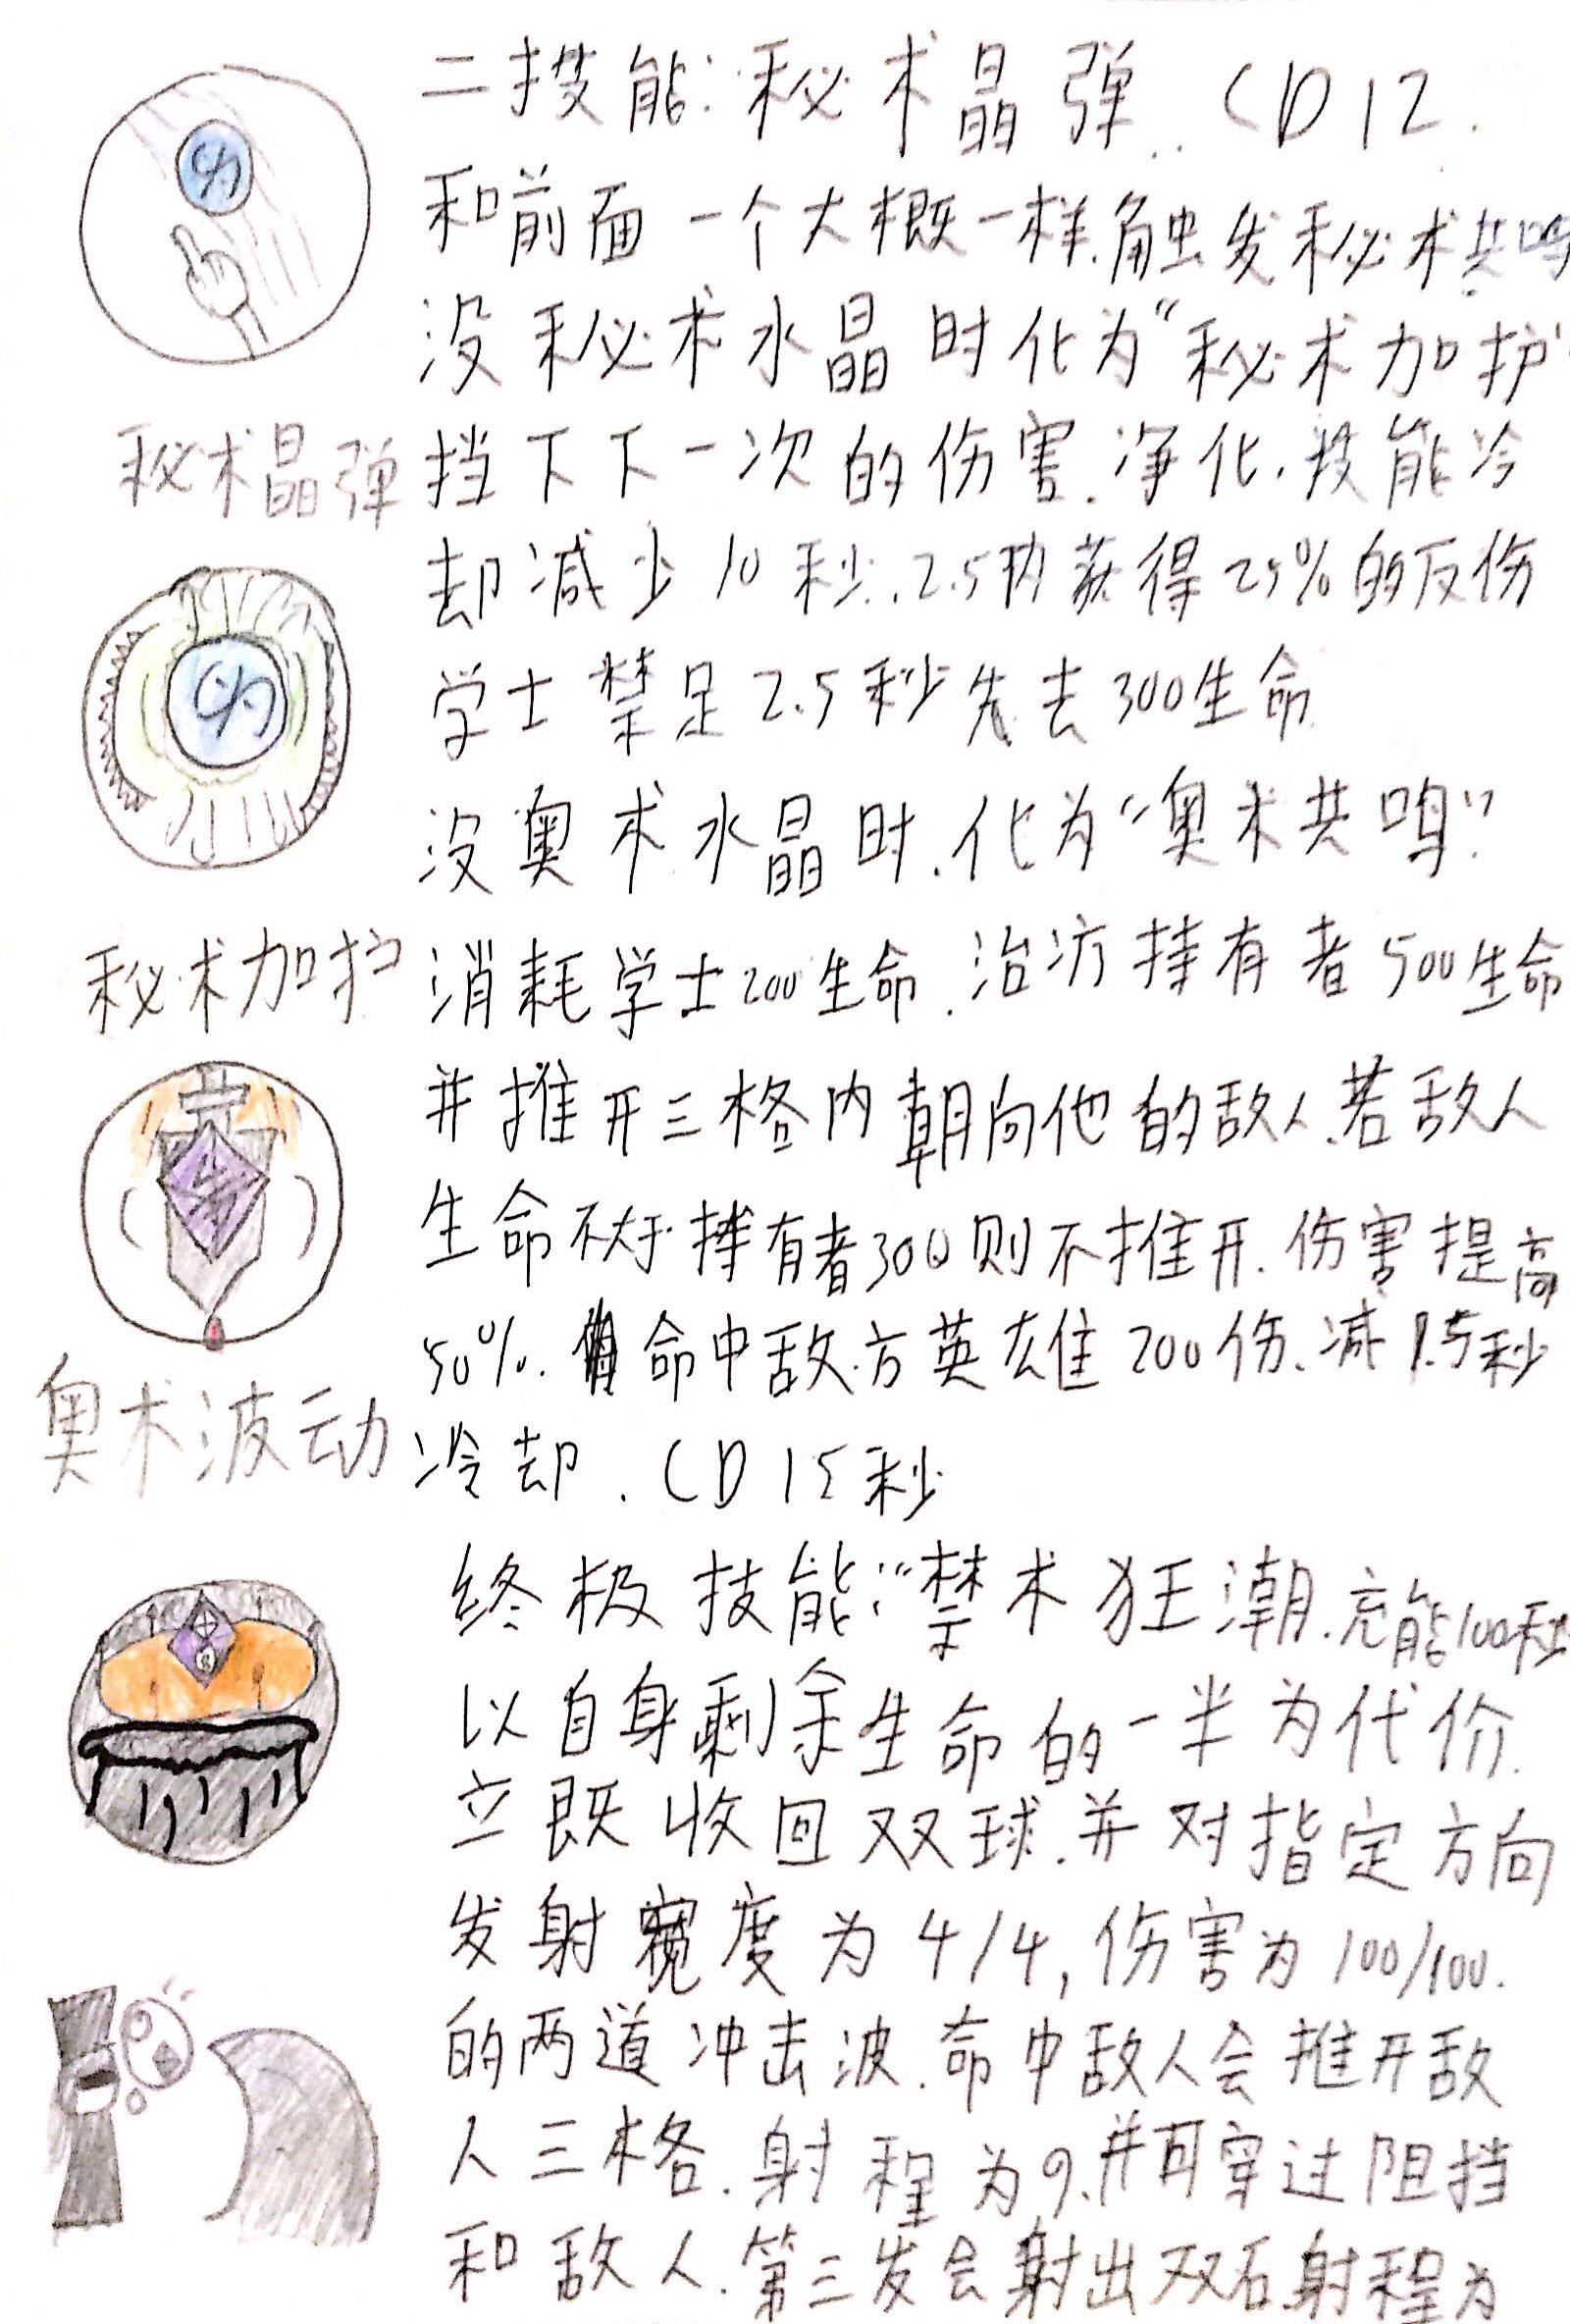 二技能:秘术晶弹.CD12.
和前面一个大概一样.触发秘术共鸣
没秘术水晶时化为“秘术加护”
秘术晶弹
挡下下一次的伤害.净化.技能冷
却减少10秒.2.5秒获得25%的反伤
学士禁足2.5秒失去300生命
没奥术水晶时.化为“奥术共鸣”
秘术加护
消耗学士200生命.治疗持有者500生命
并推开三格内朝向他的敌人.若敌人
生命不大于持有者300则不推开.伤害提高
50%.命中敌方英雄200伤.减1.5秒
奥术波动
冷却.CD15秒
终极技能:“禁术狂潮.充能100秒
以自身剩余生命的一半为代价.
立既收回双球.并对指定方向
发射宽度为4/4,伤害为100/100.
的两道冲击波.命中敌人会推开敌
人三格.射程为9.并可穿过阻挡
和敌人.第三发会射出双石.射程为